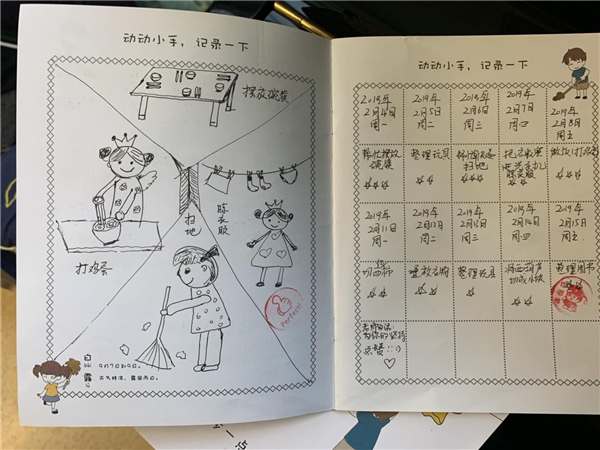 动动小手，记录一下
摆放碗筷
打鸡蛋
扫地
晾衣服
Perfect
白露
9月7日到9日。
天气转凉，露凝而白。
动动小手，记录一下
2019年
2月4日
周一
2019年
2月5日
周二
2019年
2月6日
周三
2019年
2月7日
周四
2019年
2月8日
周五
帮忙摆放
碗筷
整理玩具
扫地
晾衣服
2019年
2月11日
周一
2019年
2月12日
周二
2019年
2月13日
周三
2019年
2月14日
周四
2019年
2月15日
周五
切西
叠放衣物
整理玩具
将西葫芦
切成小块
整理图书
老师的话：
为你的坚持
点赞!!:)